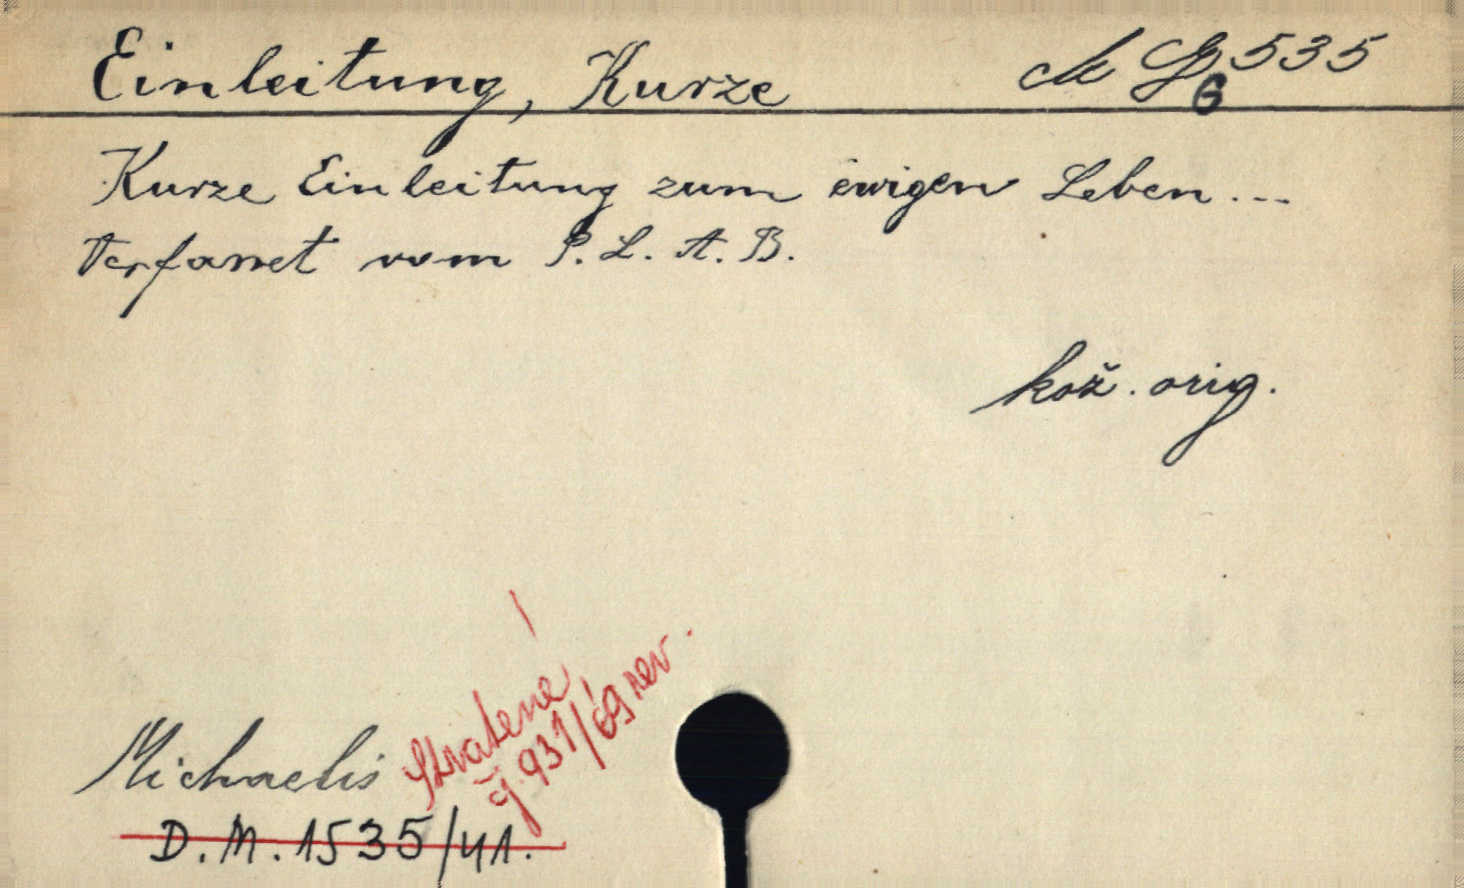 Einleitung, Kurze
G 535
6
Kurze Einleitung zum ewigen Leben...
Verfasset vom P. L. A. B.
kož. orig.
Stratené
čj. 931/69 rev.
Michaelis
D.M. 1535/41.